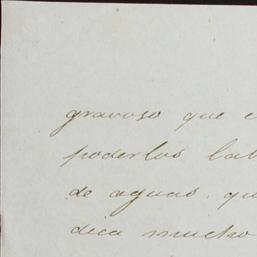 gravoso que
poderlos
de aguas, qu
dica mucho